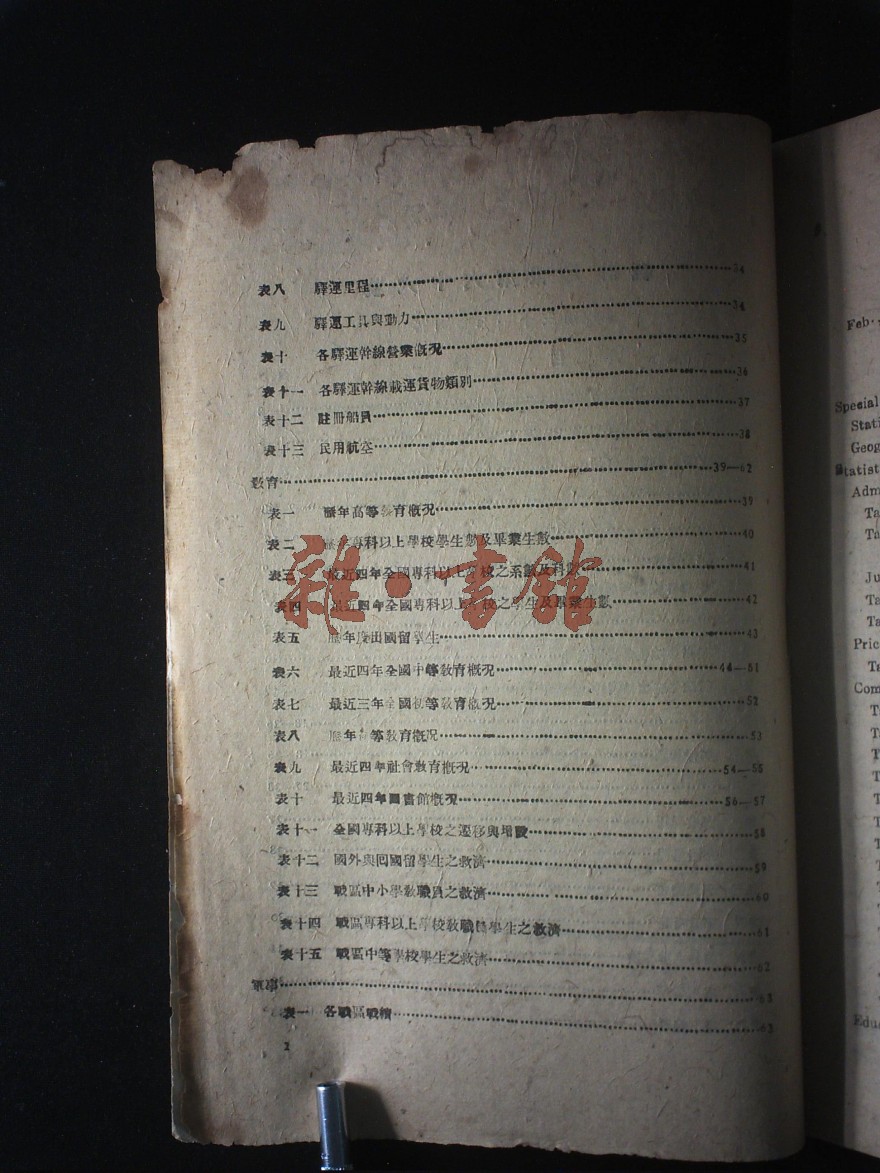 表八 驛運里程 34
表九 驛運工具與動力 34
表十 各驛運幹線營業概況 35
表十一 各驛運幹線載運貨物類別 36
表十二 註冊船員 37
表十三 民用航空 38
教育 39—62
表一 歷年高等教育概況 39
表二 歷年專科以上學校學生數及畢業生數 40
表三 最近四年全國專科以上學校之系數及科數 41
表四 最近四年全國專科以上學校之學生及畢業生數 42
表五 歷年度出國留學生 43
表六 最近四年全國中等教育概況 44—51
表七 最近三年全國初等教育概況 52
表八 歷年 等教育概況 53
表九 最近四年社會教育概況 54—55
表十 最近四年圖書館概況 56—57
表十一 全國專科以上學校之遷移與增設 58
表十二 國外與回國留學生之救濟 59
表十三 戰區中小學教職員之救濟 60
表十四 戰區專科以上學校教職員學生之救濟 61
表十五 戰區中等學校學生之救濟 62
軍事 63
表一 各戰區戰績 63
2
雜·書館
Feb.
Special
Stati
Geog
Statist
Adm
Ta
Ta
Ju
Ta
Ta
Pric
Ta
Com
T
T
T
T
T
T
T
T
Edu